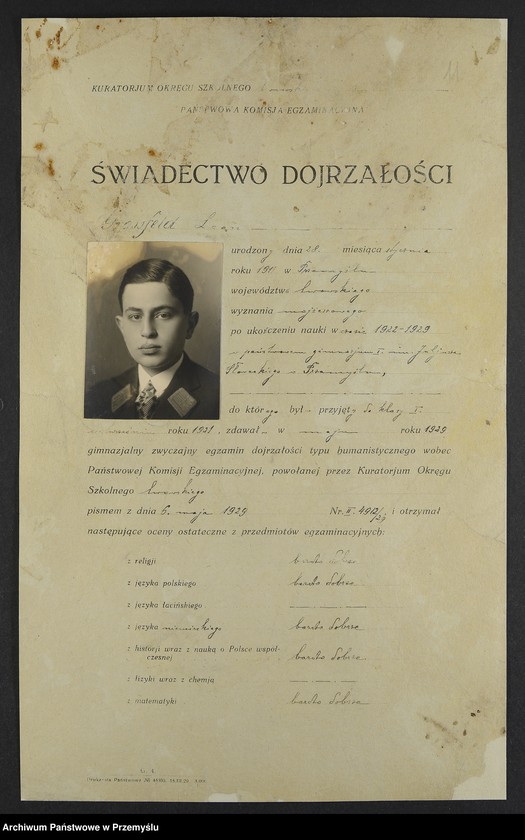 11
KURATORJUM OKRĘGU SZKOLNEGO
PAŃSTWOWA KOMISJA EGZAMINACYJNA
ŚWIADECTWO DOJRZAŁOŚCI
urodzony dnia 28. miesiąca stycznia
roku 1911 w Przemyślu
województwa lwowskiego
wyznania mojżeszowego
po ukończeniu nauki w czasie 1922-1929
w państwowem gimnazjum I. im. Juljusza
Słowackiego w Przemyślu,
do którego był przyjęty do klasy I.
roku 1921, zdawał w maju roku 1929
gimnazjalny zwyczajny egzamin dojrzałości typu humanistycznego wobec
Państwowej Komisji Egzaminacyjnej, powołanej przez Kuratorjum Okręgu
Szkolnego lwowskiego
pismem z dnia 6. maja 1929 Nr. II 4912/29 i otrzymał
następujące oceny ostateczne z przedmiotów egzaminacyjnych:
z religji bardzo dobrze
z języka polskiego bardzo dobrze
z języka łacińskiego
z języka niemieckiego bardzo dobrze
z historji wraz z nauką o Polsce współ-
czesnej bardzo dobrze
z fizyki wraz z chemją
z matematyki bardzo dobrze
Archiwum Państwowe w Przemyślu